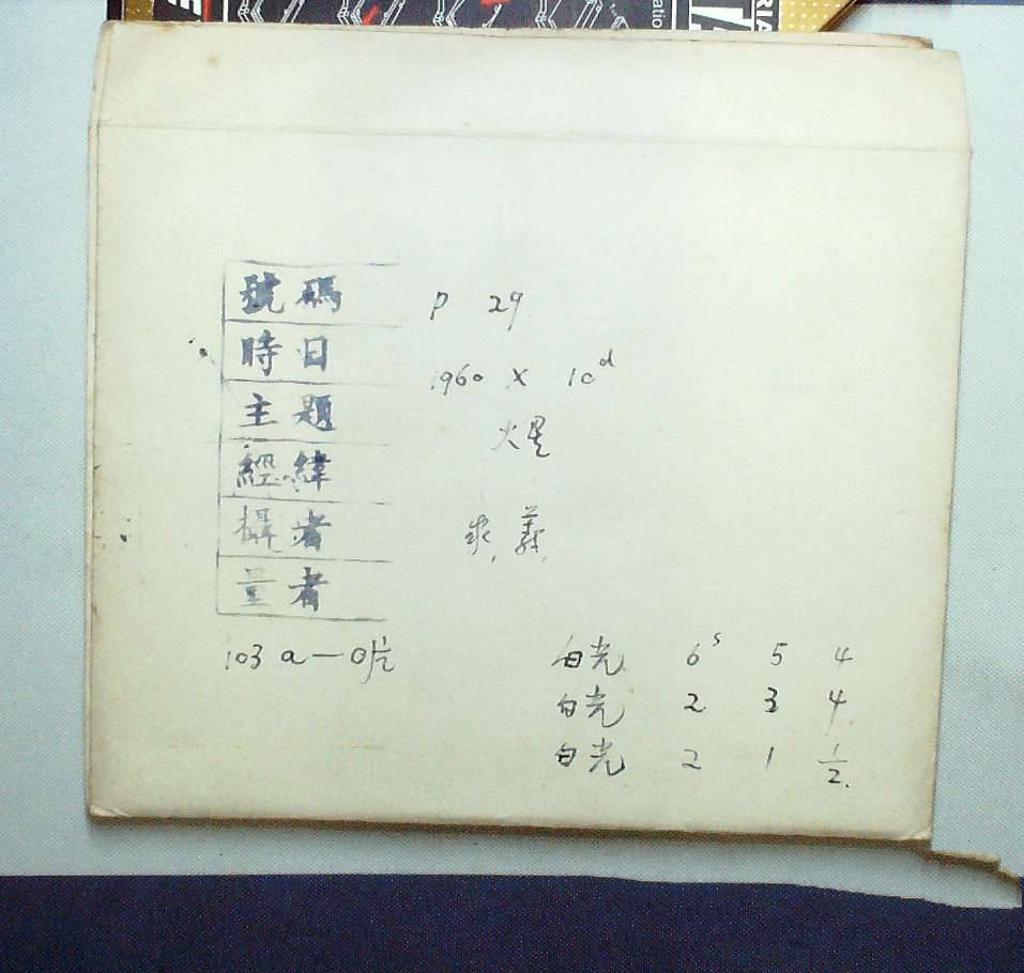 號碼 P 29
時日 1960 X 10d
主題 火星
經緯
攝者 求義
量者
103a-O片
白光 6s 5 4
白光 2 3 4
白光 2 1 1/2